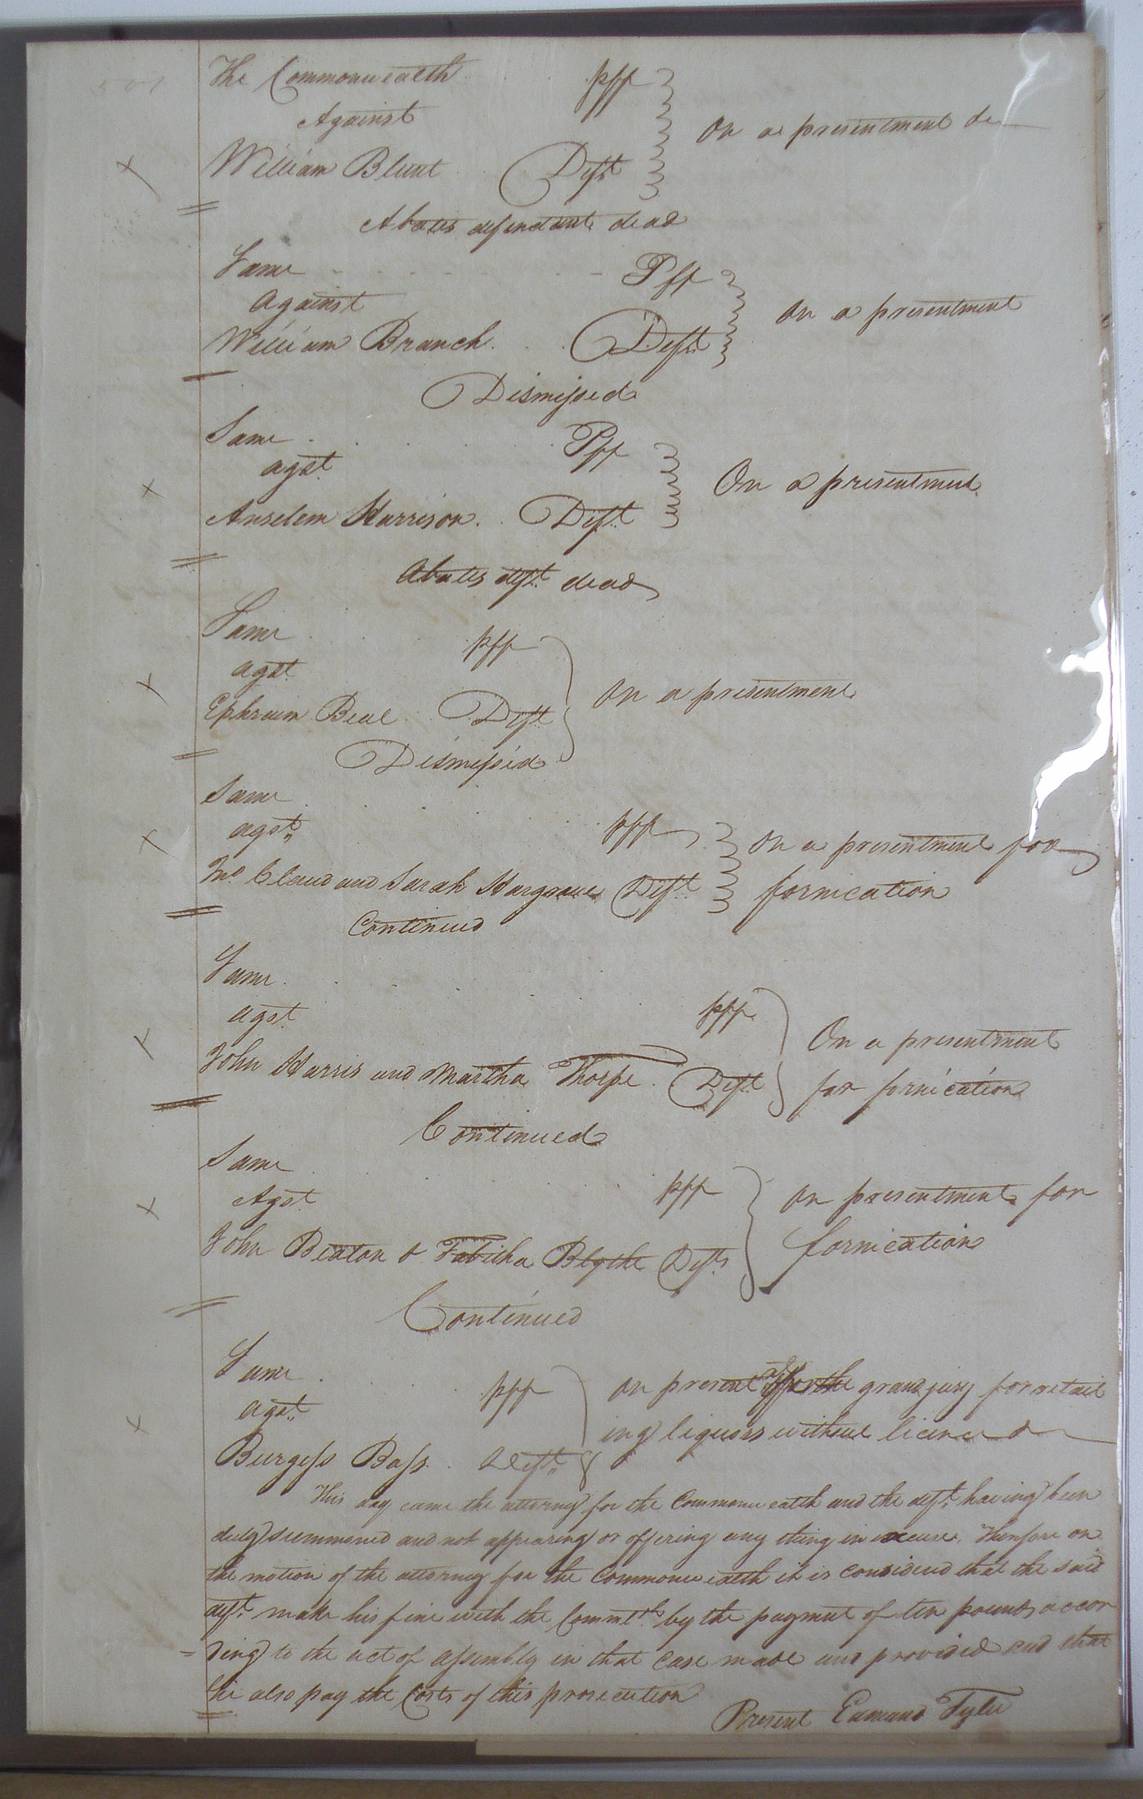 The Commonwealth pff
Against
On a presentment &c
William Blunt Deft
Abates defendant dead
Same Pff
Against
On a presentment
William Branch Deft
Dismissed
Same Pff
agst
On a presentment
Anselem Harrison Deft
Abates deft dead
Same pff
agst
On a presentment
Ephraim Beal Deft
Dismissed
Same
agst pff On a presentment for
Jno Claud and Sarah Hargrave Deft fornication
Continued
Same
agst pff On a presentment
John Harris and Martha Thorpe Deft for fornication
Continued
Same
Agst pff on presentment for
John Beaton & Tabitha Blythe Defts fornication
Continued
Same
agst pff on present the grand jury for retail
ing liquors without licence &
Burgess Bass Deft
This day came the attorney for the Commonwealth and the deft having been
duly summoned and not appearing or offering any thing in excuse. Therefore on
the motion of the attorney for the Commonwealth it is considered that the said
deft make his fine with the Commth by the payment of ten pounds accor
ding to the act of assembly in that case made and provided and that
he also pay the Costs of this prosecution
Present Edmund Tyler